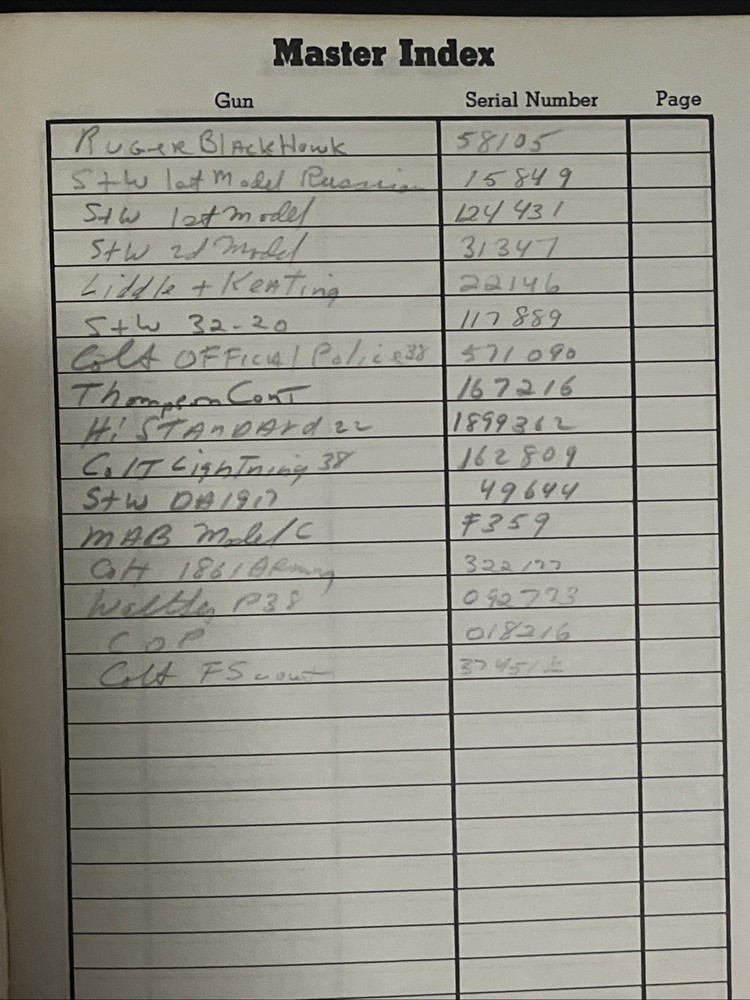 Master Index
Gun Serial Number Page
RUGER BlAckHawk 58105
S+W 1st Model Russian 15849
S+W 1st Model 124431
S+W 2d Model 31347
Liddle + KeATing 22146
S+W 32-20 117889
Colt OFFiciAl Police 38 571090
Thompson ConT 167216
Hi STAnDArd 22 1899362
ColT LighTning 38 162809
S+W DA 1917 49644
MAB Model C F359
Colt 1861 ARmy 322177
Walther P38 092773
COP 018216
Colt FScout